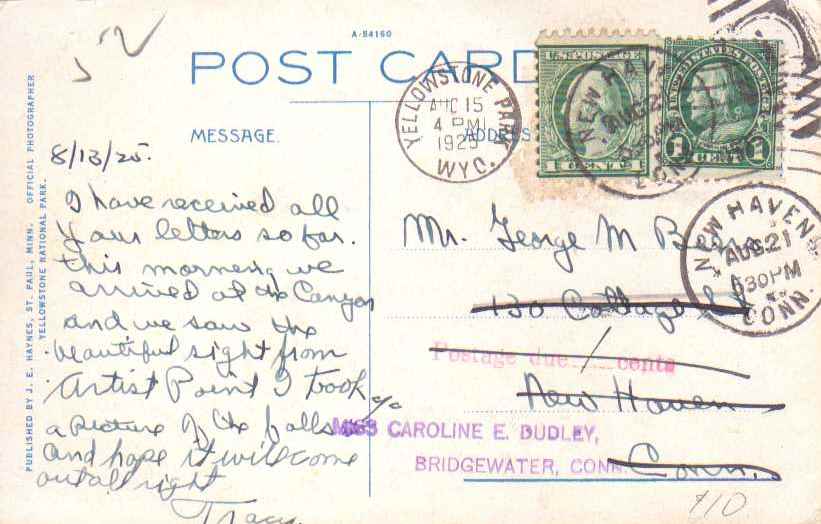 A-84160
POST CARD
MESSAGE.
ADDRESS
YELLOWSTONE PARK
AUG 15
4 PM
1925
WYO.
U.S. POSTAGE
1 CENT 1
1 CENT 1
NEW HAVEN
AUG 21
CONN.
NEW HAVEN
AUG 21
630 PM
CONN.
8/13/25.
I have received all
your letters so far.
this morning we
arrived at the Canyon
and we saw the
beautiful sight from
Artist Point I took
a picture of the falls
and hope it will come
out all right
Tracy.
Mr. George M
130 Cottage St
Postage due 1 cents
New Haven
Conn.
c/o
MISS CAROLINE E. DUDLEY,
BRIDGEWATER, CONN.
710
PUBLISHED BY J. E. HAYNES, ST. PAUL, MINN. OFFICIAL PHOTOGRAPHER
YELLOWSTONE NATIONAL PARK.